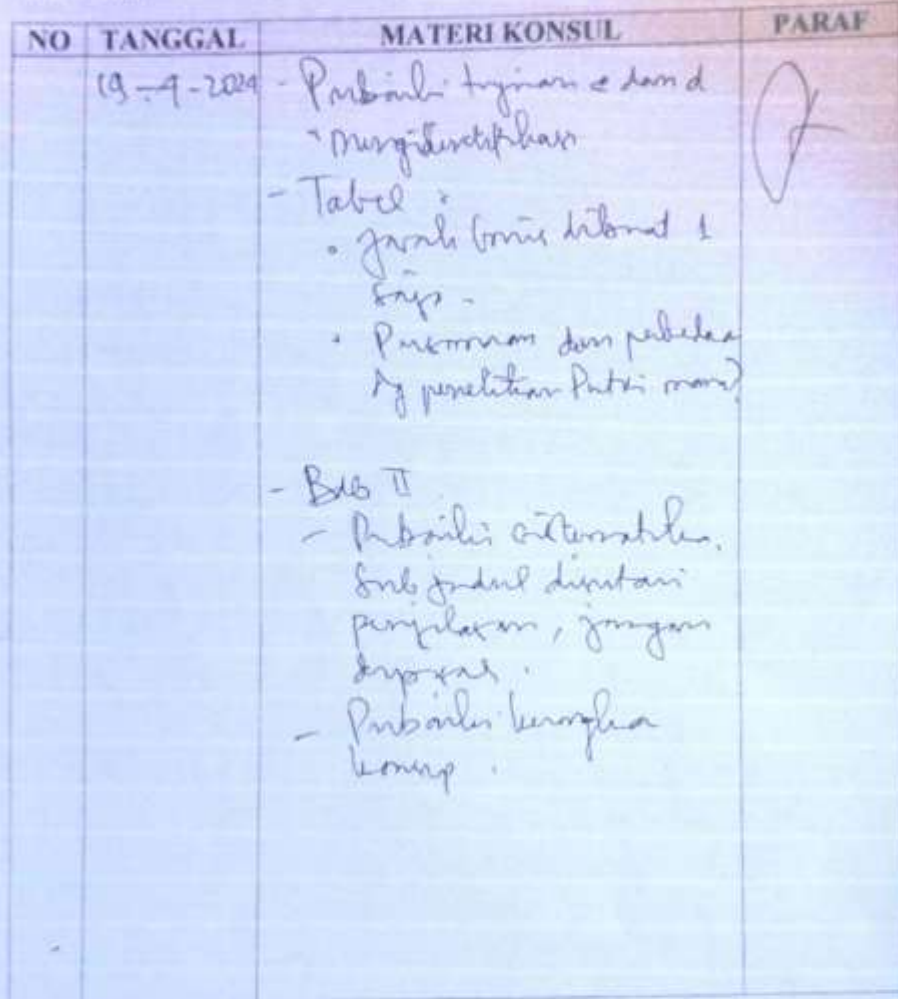 NO TANGGAL MATERI KONSUL PARAF
19-4-2024 - Perbaiki tujuan c dan d
" mengidentifikasi
- Tabel :
• jarak baris dibuat 1
saja -
• Persamaan dan perbedaan
dg penelitian Putri mana?
- Bab II
- Perbaiki sistematika,
Sub judul disertai
penjelasan, jangan
dipisah .
- Perbaiki kerangka
konsep .